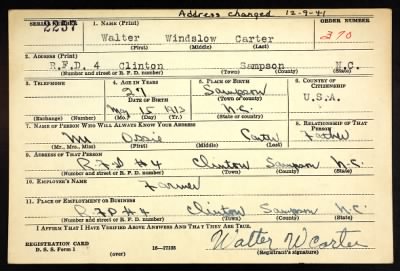 Address changed 12-9-41
SERIAL NUMBER 1. NAME (Print) ORDER NUMBER
2237 Walter Windslow Carter 270
(First) (Middle) (Last)
2. ADDRESS (Print)
R.F.D. 4 Clinton Sampson N.C.
(Number and street or R. F. D. number) (Town) (County) (State)
3. TELEPHONE 4. AGE IN YEARS 5. PLACE OF BIRTH 6. COUNTRY OF CITIZENSHIP
27 Sampson
DATE OF BIRTH (Town or county) U.S.A.
15 1913 N.C.
(Exchange) (Number) (Mo.) (Day) (Yr.) (State or country)
7. NAME OF PERSON WHO WILL ALWAYS KNOW YOUR ADDRESS 8. RELATIONSHIP OF THAT PERSON
Mr Ossie Carter Father
(Mr., Mrs., Miss) (First) (Middle) (Last)
9. ADDRESS OF THAT PERSON
R.F.D #4 Clinton Sampson N.C.
(Number and street or R. F. D. number) (Town) (County) (State)
10. EMPLOYER'S NAME
Farmer
11. PLACE OF EMPLOYMENT OR BUSINESS
R.F.D #4 Clinton Sampson N.C.
(Number and street or R. F. D. number) (Town) (County) (State)
I AFFIRM THAT I HAVE VERIFIED ABOVE ANSWERS AND THAT THEY ARE TRUE.
REGISTRATION CARD Walter W Carter
D. S. S. Form 1 16-17105 (Registrant's signature)
(over)